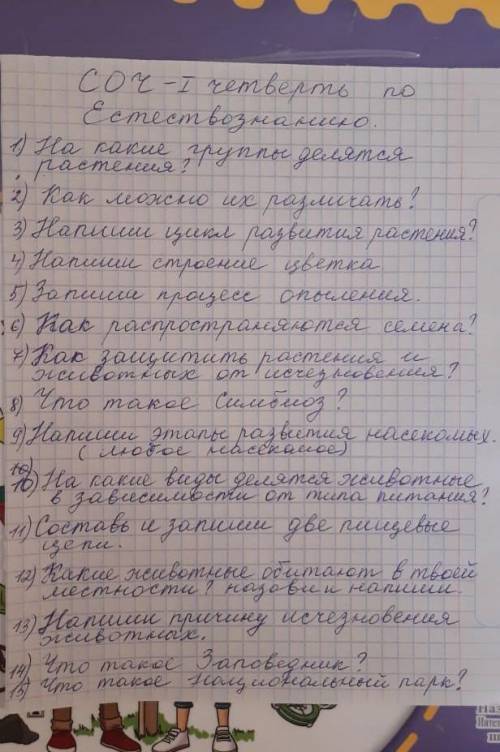 СОЧ - I четверть по
Естествознанию.
1) На какие группы делятся
растения?
2) Как можно их различать?
3) Напиши цикл развития растения?
4) Напиши строение цветка.
5) Запиши процесс опыления.
6) Как распространяются семена?
7) Как защитить растения и
животных от исчезновения?
8) Что такое Симбиоз?
9) Напиши этапы развития насекомых.
(любое насекомое)
10) На какие виды делятся животные
в зависимости от типа питания?
11) Составь и запиши две пищевые
цепи.
12) Какие животные обитают в твоей
местности? назови и напиши.
13) Напиши причину исчезновения
животных.
14) Что такое Заповедник?
15) Что такое Национальный парк?